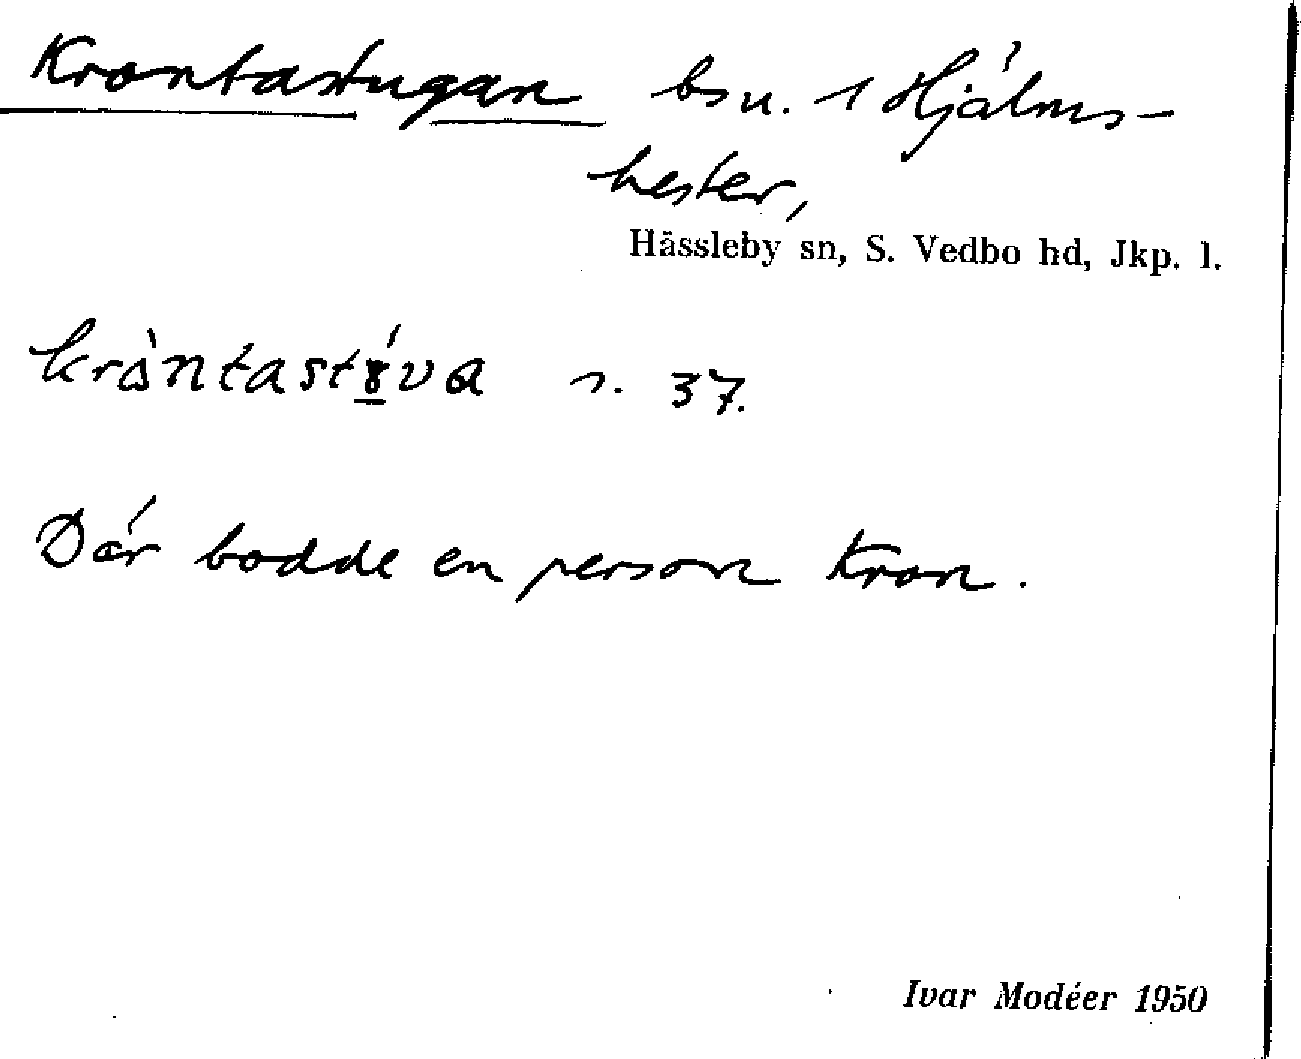 Krontastugan bsn. 1 Hjälms-
hester,
Hässleby sn, S. Vedbo hd, Jkp. l.
s. 37.
Där bodde en person Kron.
Ivar Modéer 1950